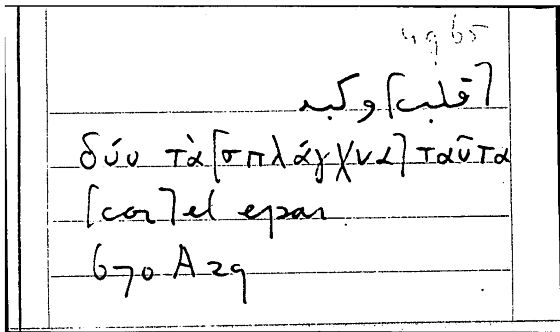 4965
[قلب] وكبد
δύο τὰ [σπλάγχνα] ταῦτα
[cor] et epar
670 A 29